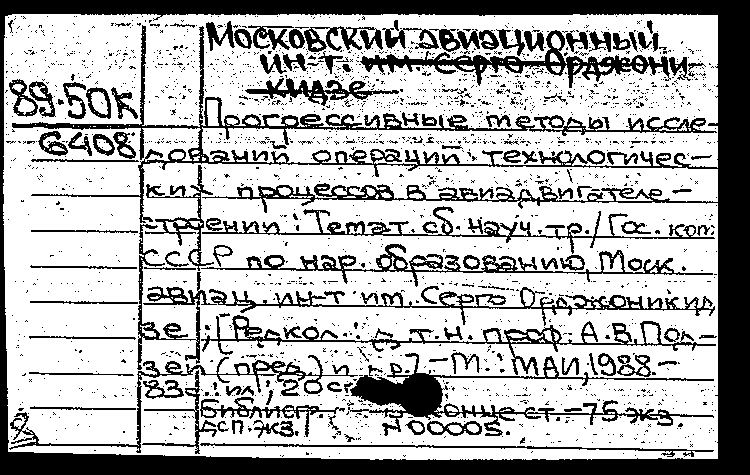 Московский авиационный
ин-т. им. Серго Орджони-
кидзе
89-50К
6408
Прогрессивные методы иссле-
дований операций технологичес-
ких процессов в авиадвигателе-
строении : Темат. сб. науч. тр./ Гос. ком.
СССР по нар. образованию, Моск.
авиац. ин-т им. Серго Орджоникид
зе ; [Редкол.: д. т. н. проф. А. В. Под-
зей (пред.) и др.] - М. : МАИ, 1988.-
83с.: ил.; 20 см
Библиогр. конце ст. - 75 экз.
дсп. экз. N 00005.